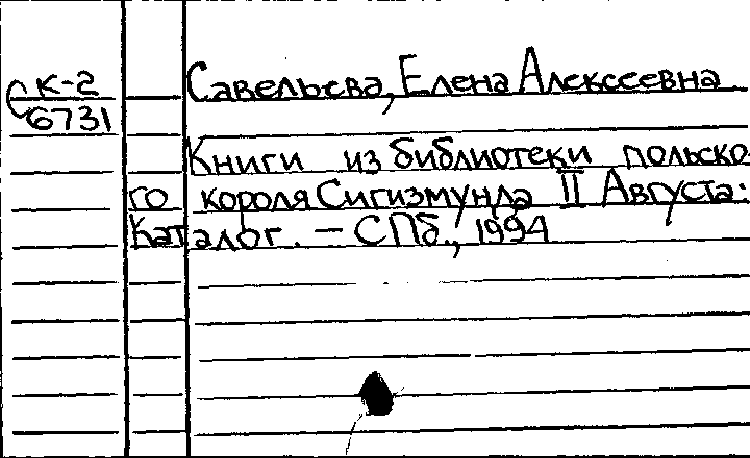 Савельева, Елена Алексеевна
С К-2
6731
Книги из библиотеки польско
го короля Сигизмунда II Августа:
Каталог. – СПб., 1994